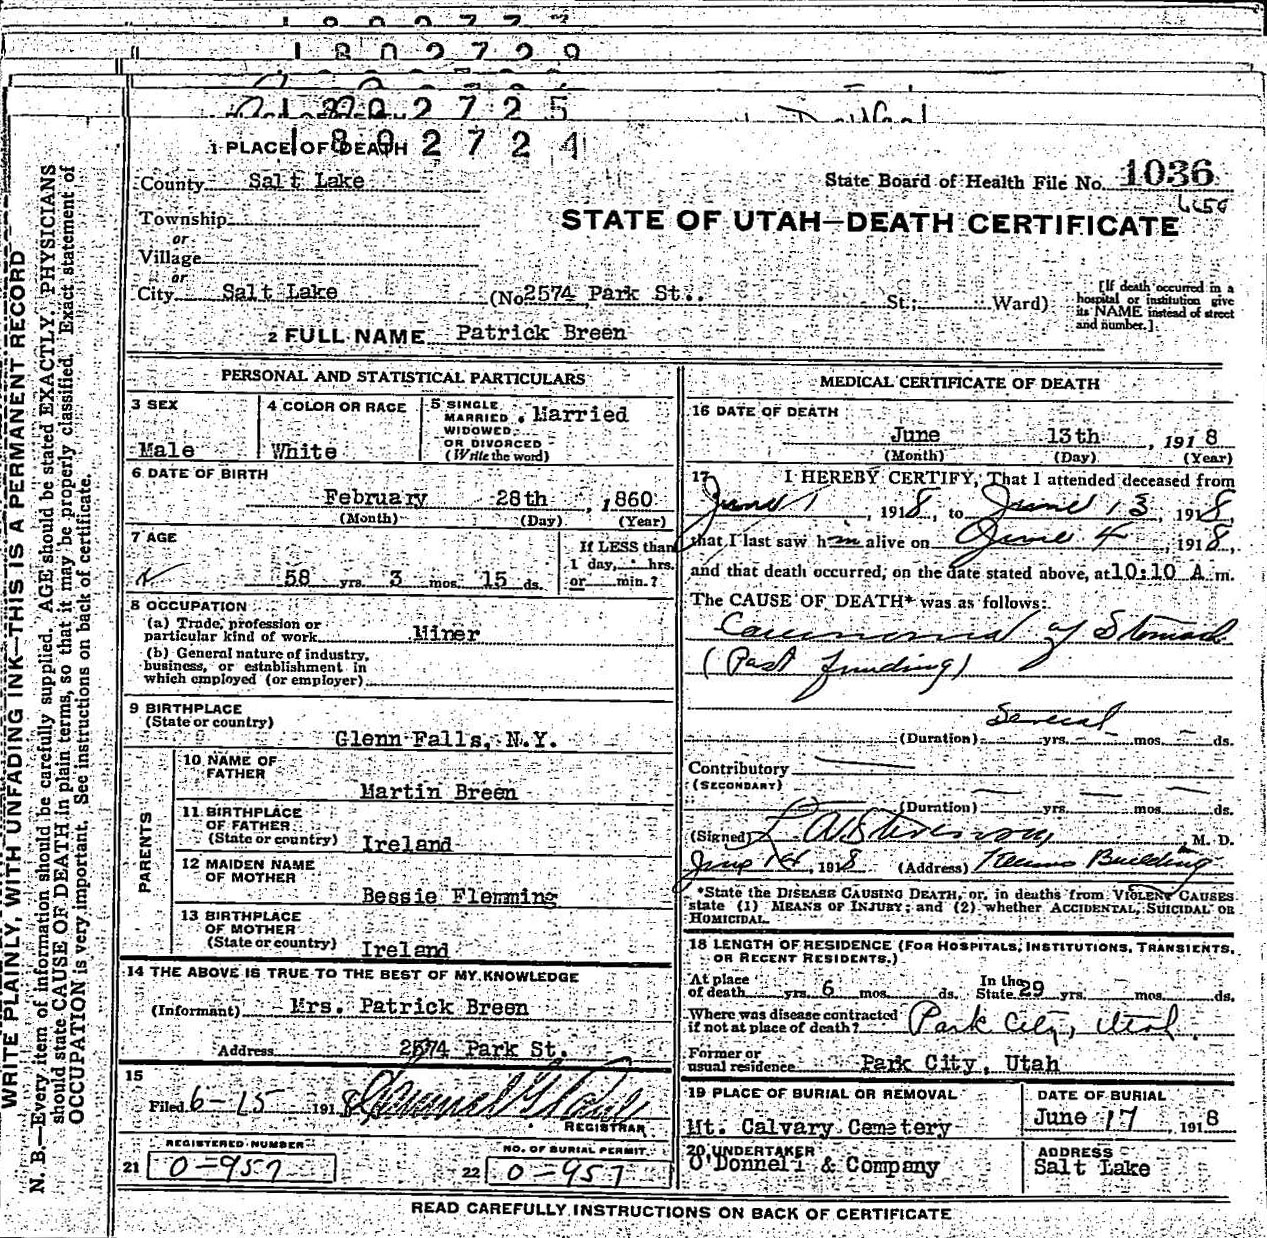 1 8 0 2 7 2 9
1 8 0 2 7 2 5
1 8 0 2 7 2 4
1 PLACE OF DEATH
County Salt Lake
State Board of Health File No. 1036
Township
STATE OF UTAH—DEATH CERTIFICATE
or
Village
or
City Salt Lake (No 2574 Park St.. St.; Ward)
[If death occurred in a hospital or institution give its NAME instead of street and number.]
2 FULL NAME Patrick Breen
PERSONAL AND STATISTICAL PARTICULARS
3 SEX
Male
4 COLOR OR RACE
White
5 SINGLE
MARRIED
WIDOWED
OR DIVORCED
(Write the word)
Married
6 DATE OF BIRTH
February 28th, 1860
(Month) (Day) (Year)
7 AGE
58 yrs. 3 mos. 15 ds.
If LESS than
1 day, hrs.
or min.?
8 OCCUPATION
(a) Trade, profession or
particular kind of work Miner
(b) General nature of industry,
business, or establishment in
which employed (or employer)
9 BIRTHPLACE
(State or country)
Glenn Falls, N.Y.
PARENTS
10 NAME OF
FATHER
Martin Breen
11 BIRTHPLACE
OF FATHER
(State or country) Ireland
12 MAIDEN NAME
OF MOTHER
Bessie Flemming
13 BIRTHPLACE
OF MOTHER
(State or country) Ireland
14 THE ABOVE IS TRUE TO THE BEST OF MY KNOWLEDGE
(Informant) Mrs. Patrick Breen
Address 2574 Park St.
15
Filed 6-15 1918
REGISTRAR
REGISTERED NUMBER
21 0-957
NO. OF BURIAL PERMIT
22 0-957
MEDICAL CERTIFICATE OF DEATH
16 DATE OF DEATH
June 13th, 1918
(Month) (Day) (Year)
17 I HEREBY CERTIFY, That I attended deceased from
June 1, 1918, to June 13, 1918,
that I last saw h im alive on June 4, 1918,
and that death occurred, on the date stated above, at 10:10 A m.
The CAUSE OF DEATH* was as follows:
Carcinoma of Stomach
(Past finding)
Several
(Duration) yrs. mos. ds.
Contributory
(SECONDARY)
(Duration) yrs. mos. ds.
(Signed) Stevenson M. D.
June 14, 1918 (Address) Kearns Building
*State the DISEASE CAUSING DEATH, or, in deaths from VIOLENT CAUSES
state (1) MEANS OF INJURY; and (2) whether ACCIDENTAL, SUICIDAL OR
HOMICIDAL.
18 LENGTH OF RESIDENCE (FOR HOSPITALS, INSTITUTIONS, TRANSIENTS,
OR RECENT RESIDENTS.)
At place
of death yrs. 6 mos. ds.
In the
State 29 yrs. mos. ds.
Where was disease contracted
if not at place of death? Park City, Utah.
Former or
usual residence Park City, Utah
19 PLACE OF BURIAL OR REMOVAL
Mt. Calvary Cemetery
DATE OF BURIAL
June 17 1918
20 UNDERTAKER
O'Donnell & Company
ADDRESS
Salt Lake
READ CAREFULLY INSTRUCTIONS ON BACK OF CERTIFICATE
WRITE PLAINLY, WITH UNFADING INK—THIS IS A PERMANENT RECORD
N. B.—Every item of information should be carefully supplied. AGE should be stated EXACTLY. PHYSICIANS
should state CAUSE OF DEATH in plain terms, so that it may be properly classified. Exact statement of
OCCUPATION is very important. See instructions on back of certificate.